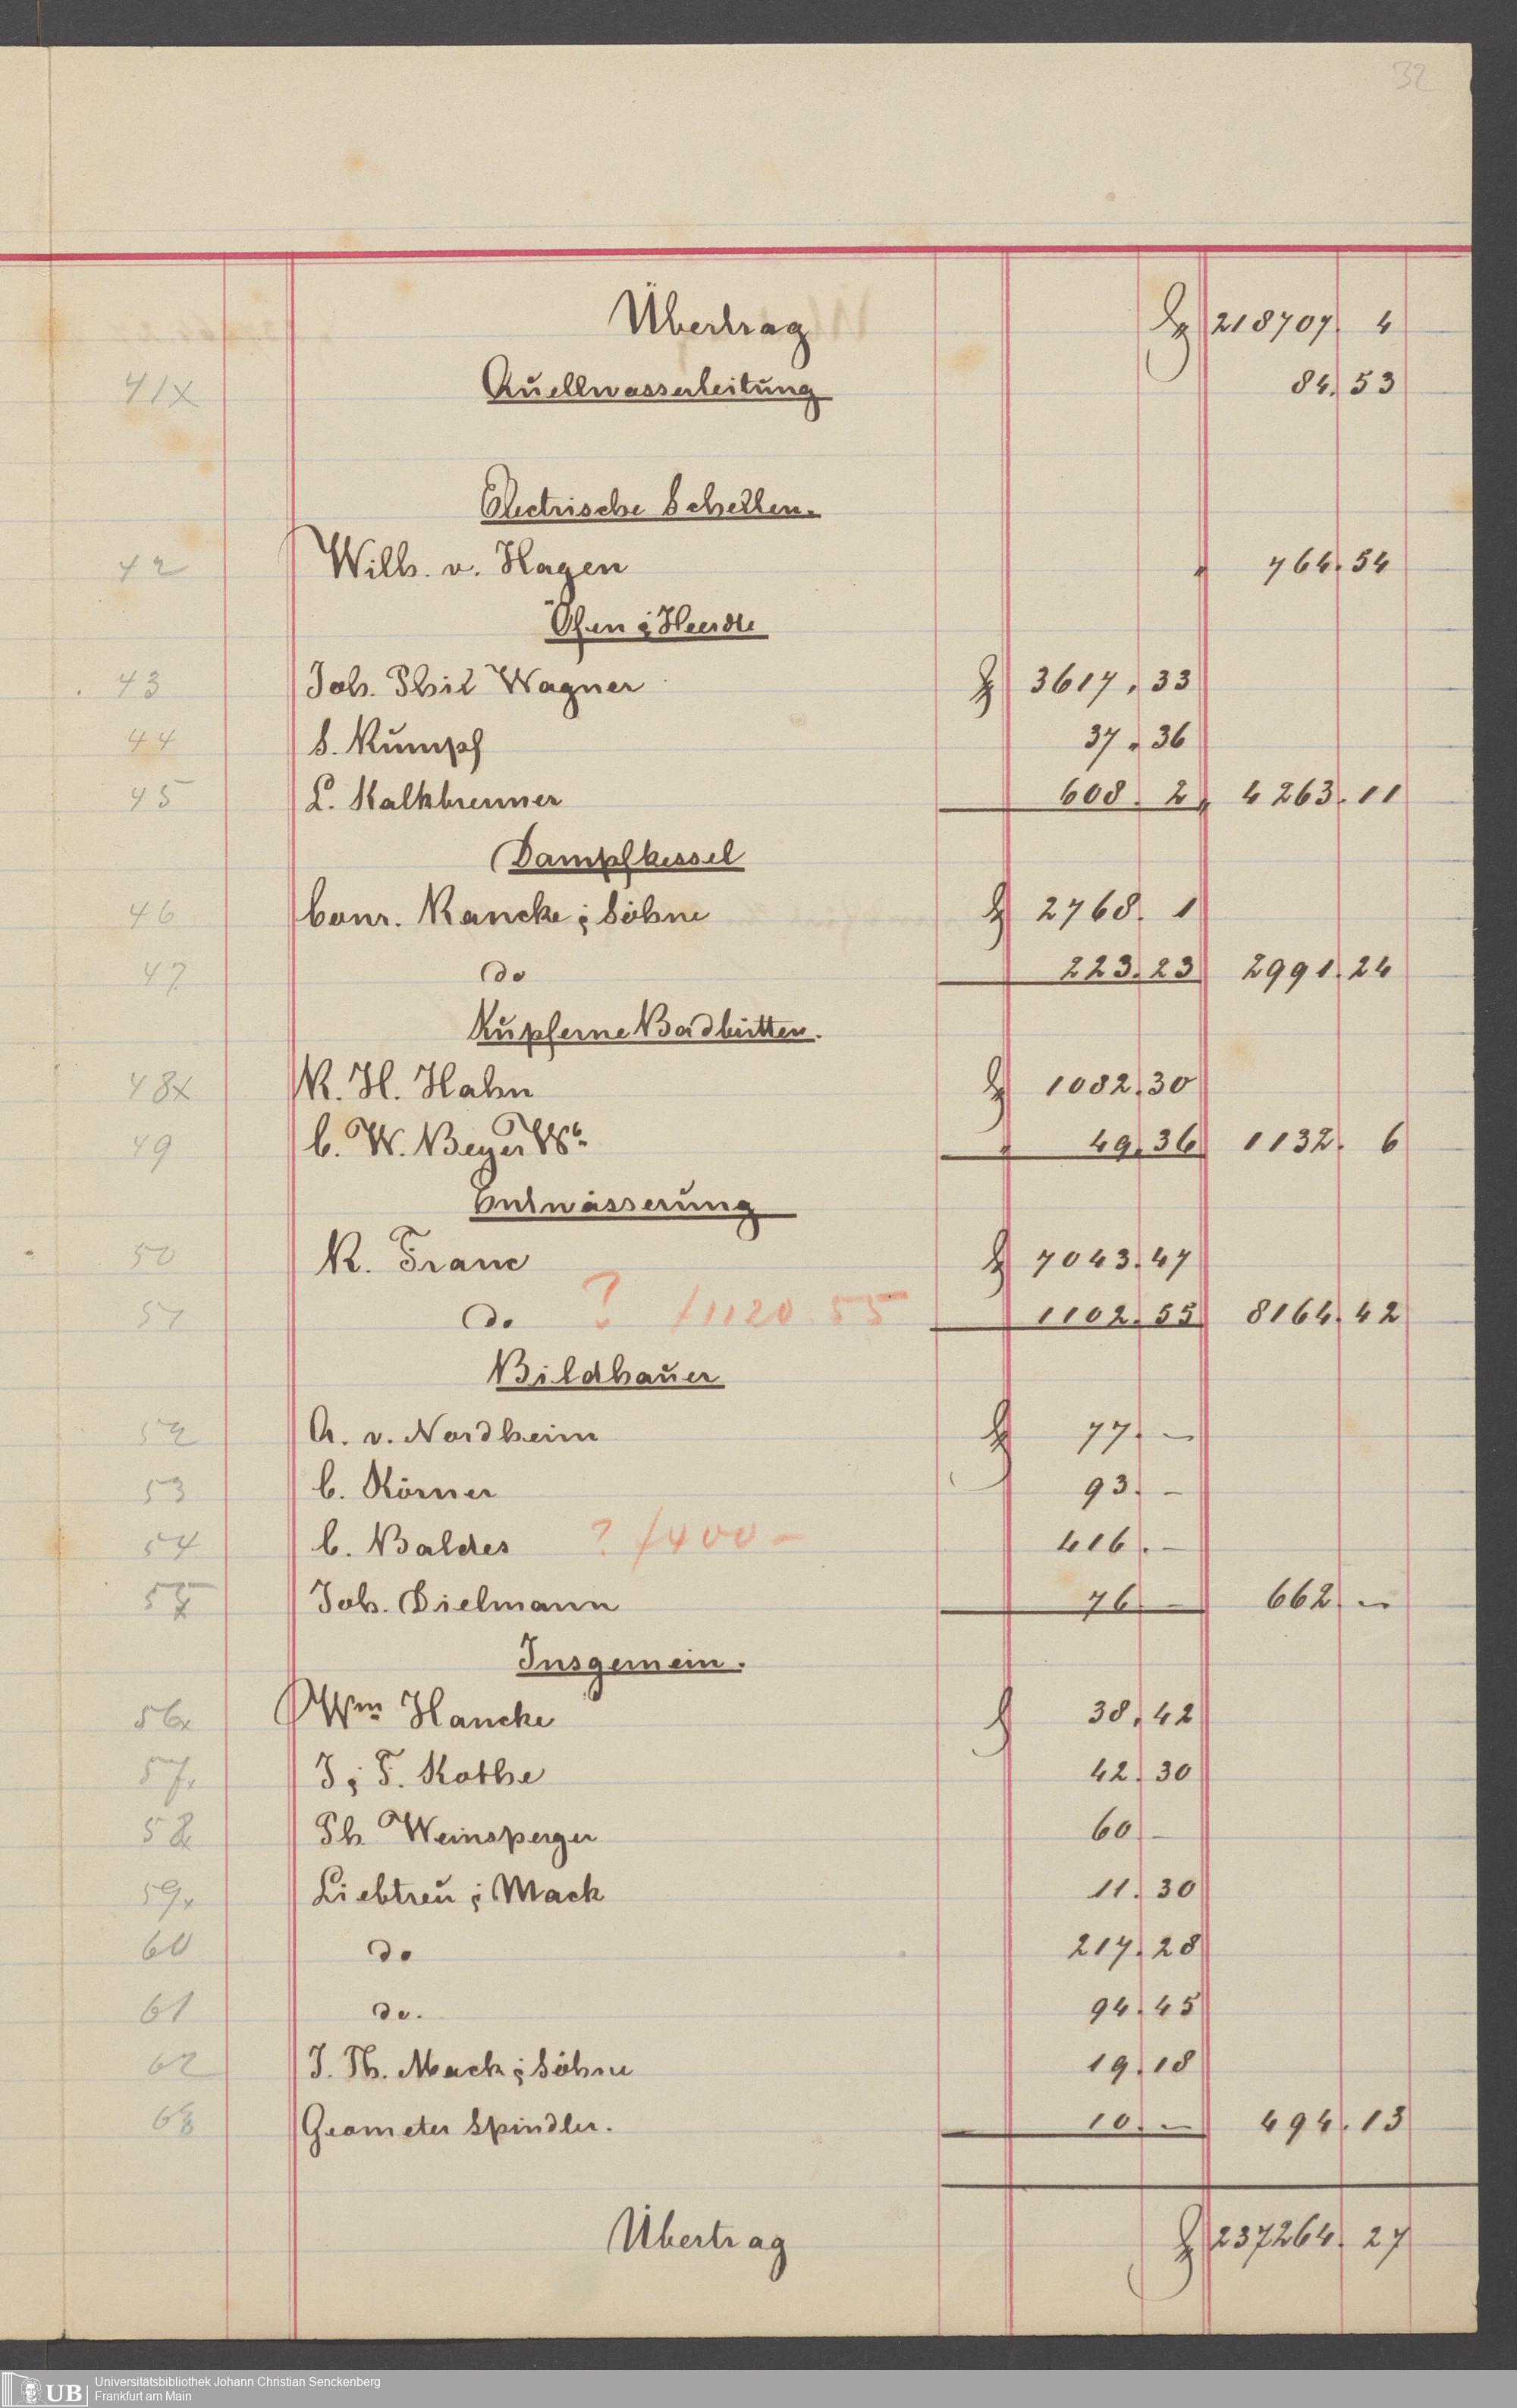 32
Übertrag fl 218707. 4
41x Quellwasserleitung 84. 53
Electrische Schellen.
42 Wilh. v. Hagen " 764. 54
Öfen & Heerde
43 Joh. Phil Wagner fl 3617. 33
44 S. Kumpf 37. 36
45 L. Kalkbrenner 608. 2 " 4263. 11
Dampfkessel
46 Conr. Rancke & Söhne fl 2768. 1
47 do 223. 23 2991. 24
Kupferne Badbütten.
48x R. H. Hahn fl 1082. 30
49 C. W. Beyer Wb. " 49. 36 1132. 6
Entwässerung
50 R. Franc fl 7043. 47
51 do ? f 1120. 55 1102. 55 8164. 42
Bildhauer
52 A. v. Nordheim fl 77. –
53 C. Körner 93. –
54 C. Baldes ? f 400 – 416. –
55x Joh. Dielmann 76 – 662 –
Insgemein.
56x Wm Hancke fl 38. 42
57x J & F. Kothe 42. 30
58x Ph. Weinsperger 60 –
59x Liebtreu & Mack 11. 30
60 do 217. 28
61 do. 94. 45
62 J. Th. Mack & Söhne 19. 18
63 Geometer Spindler. 10. – 494. 13
Übertrag fl 237264. 27
UB Universitätsbibliothek Johann Christian Senckenberg
Frankfurt am Main